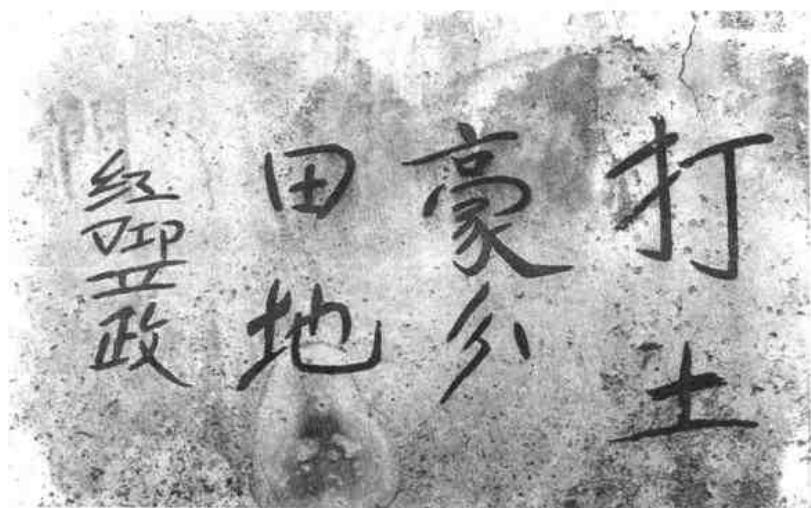 打土
豪分
田地
红政